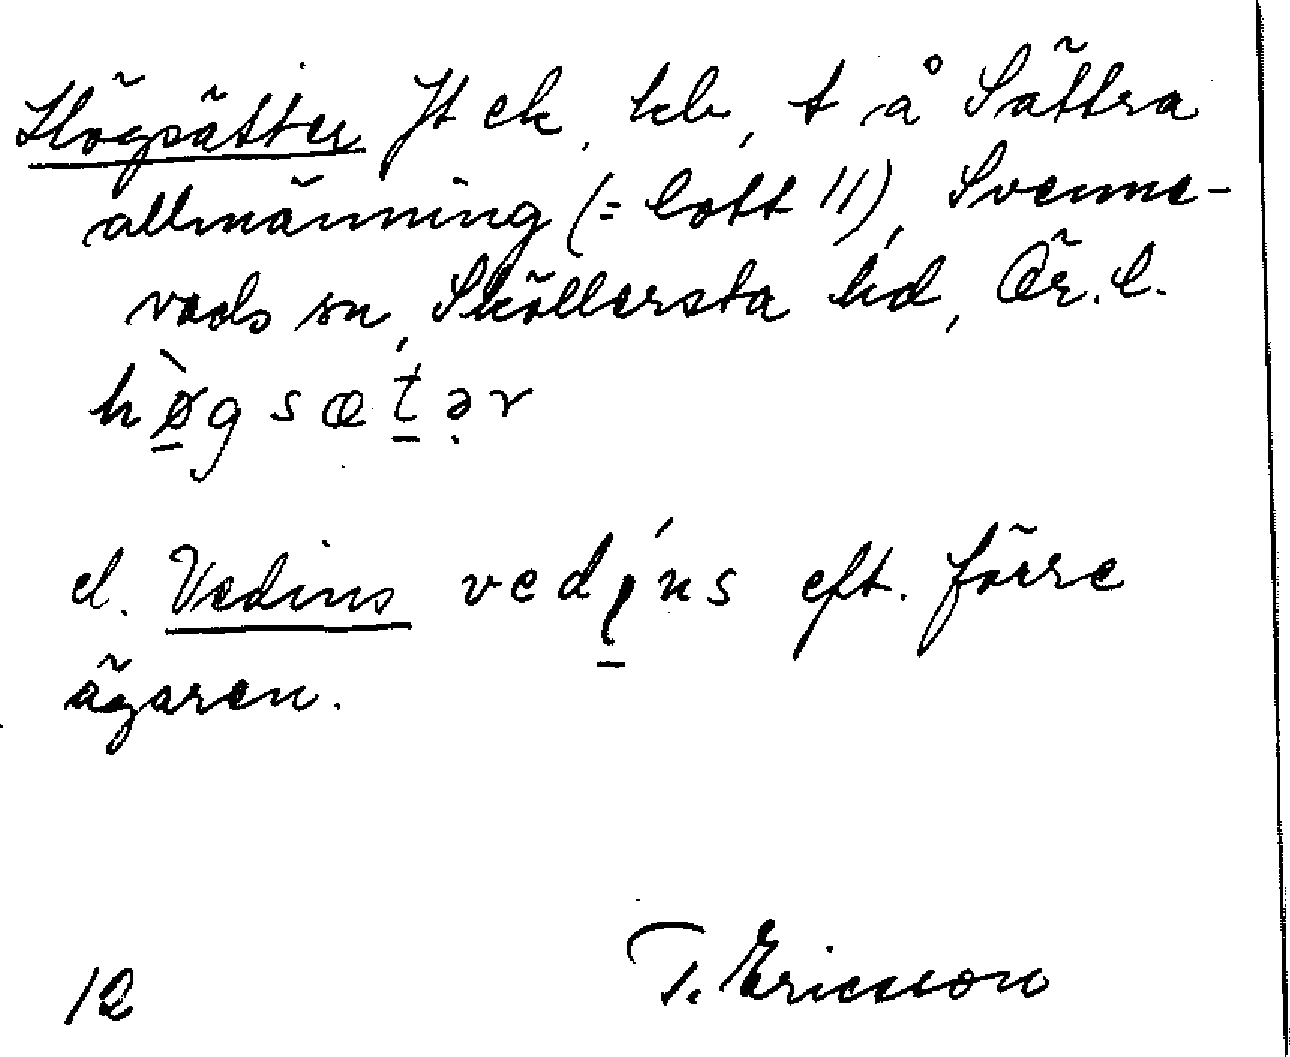 Högsätter Jt ek, kb, t å Sättra
allmänning (= lott 11), Svenne-
vads sn, Sköllersta hd, Ör. l.
hø̱̀gsæṯ́ər
el. Vedins vedı̱́ns eft. förre
ägaren.
12 T. Ericsson